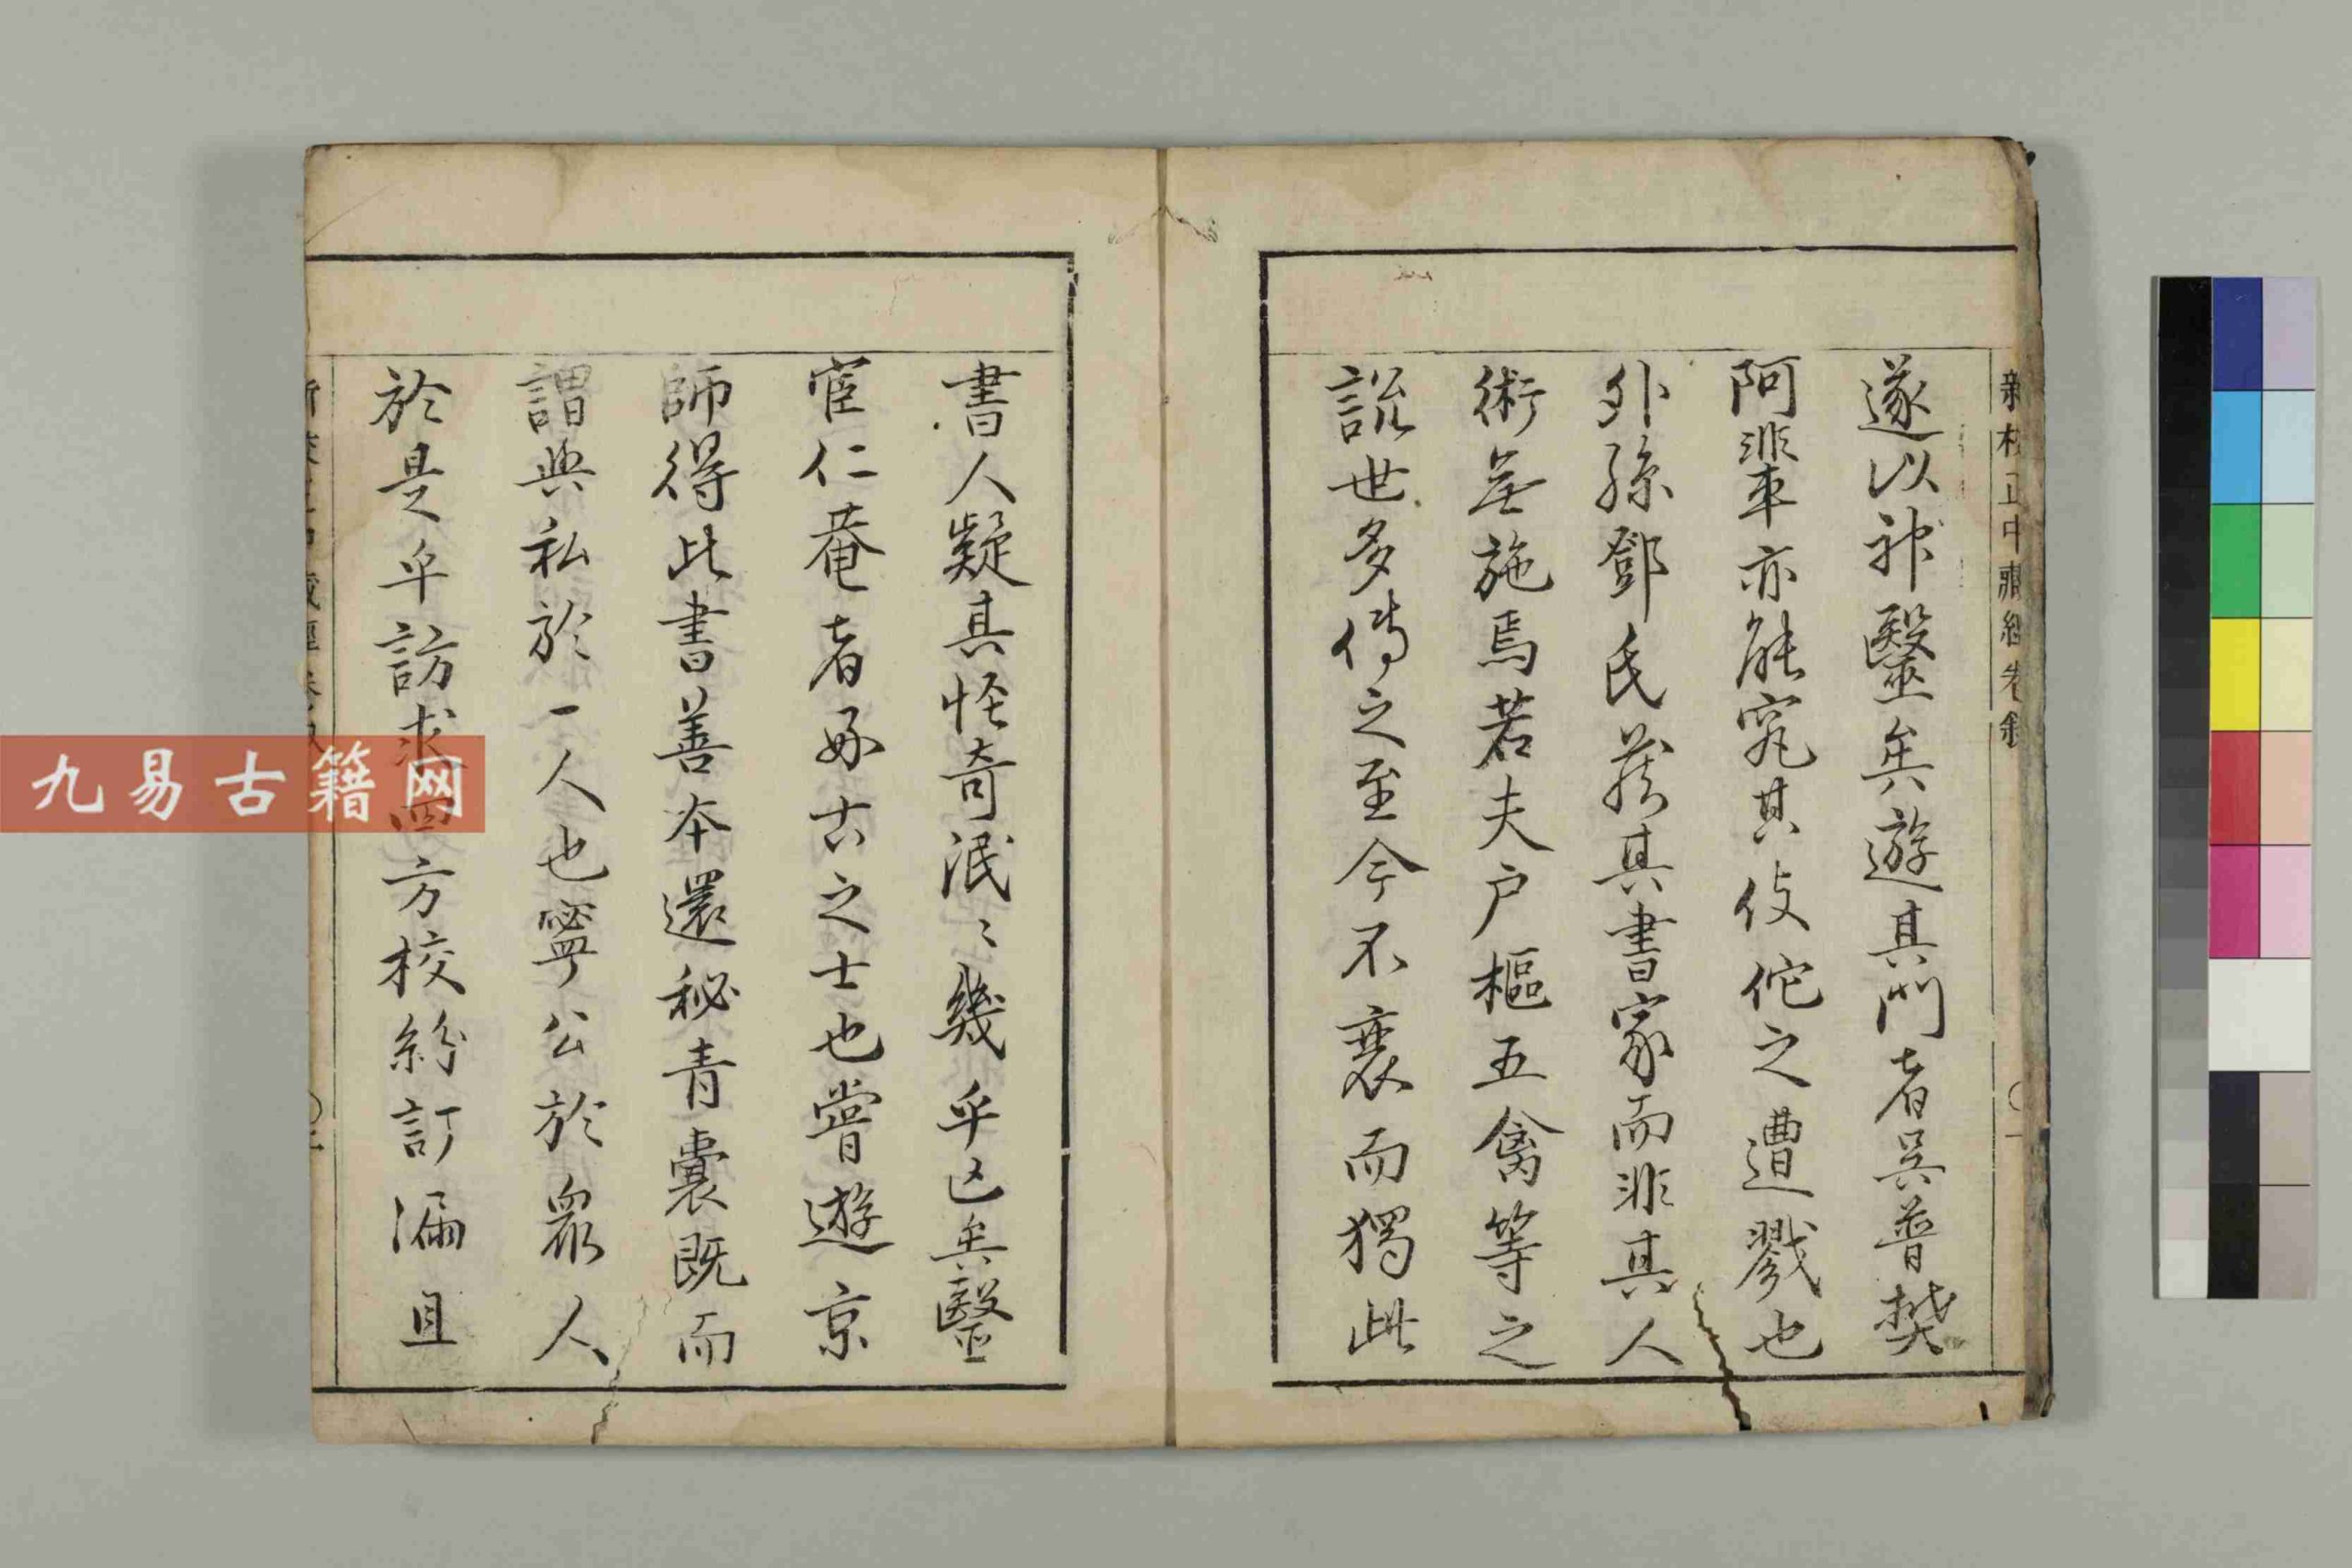 遂以神醫矣遊其門者吳普樊
阿輩亦能究其伎佗之遭戮也
外孫鄧氏蔵其書家而非其人
術莫施焉若夫户樞五禽等之
說世多傳之至今不衰而獨此
書人疑其怪奇泯〻幾乎亡矣醫
官仁菴者好古之士也嘗遊京
師得此書善本還秘青囊既而
謂與私於一人也寧公於衆人
於是乎訪求四方校紛訂漏且
九易古籍网